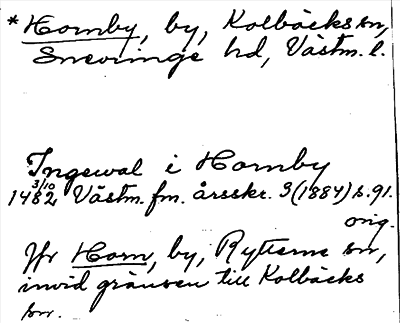 * Hornby, by, Kolbäcks sn,
Snevringe hd, Västm. l.
Ingewal i Hornby
3/10
1482 Västm. fm. årsskr. 3 (1884) s. 91.
orig.
Jfr Horn, by, Rytterne sn,
invid gränsen till Kolbäcks
sn.